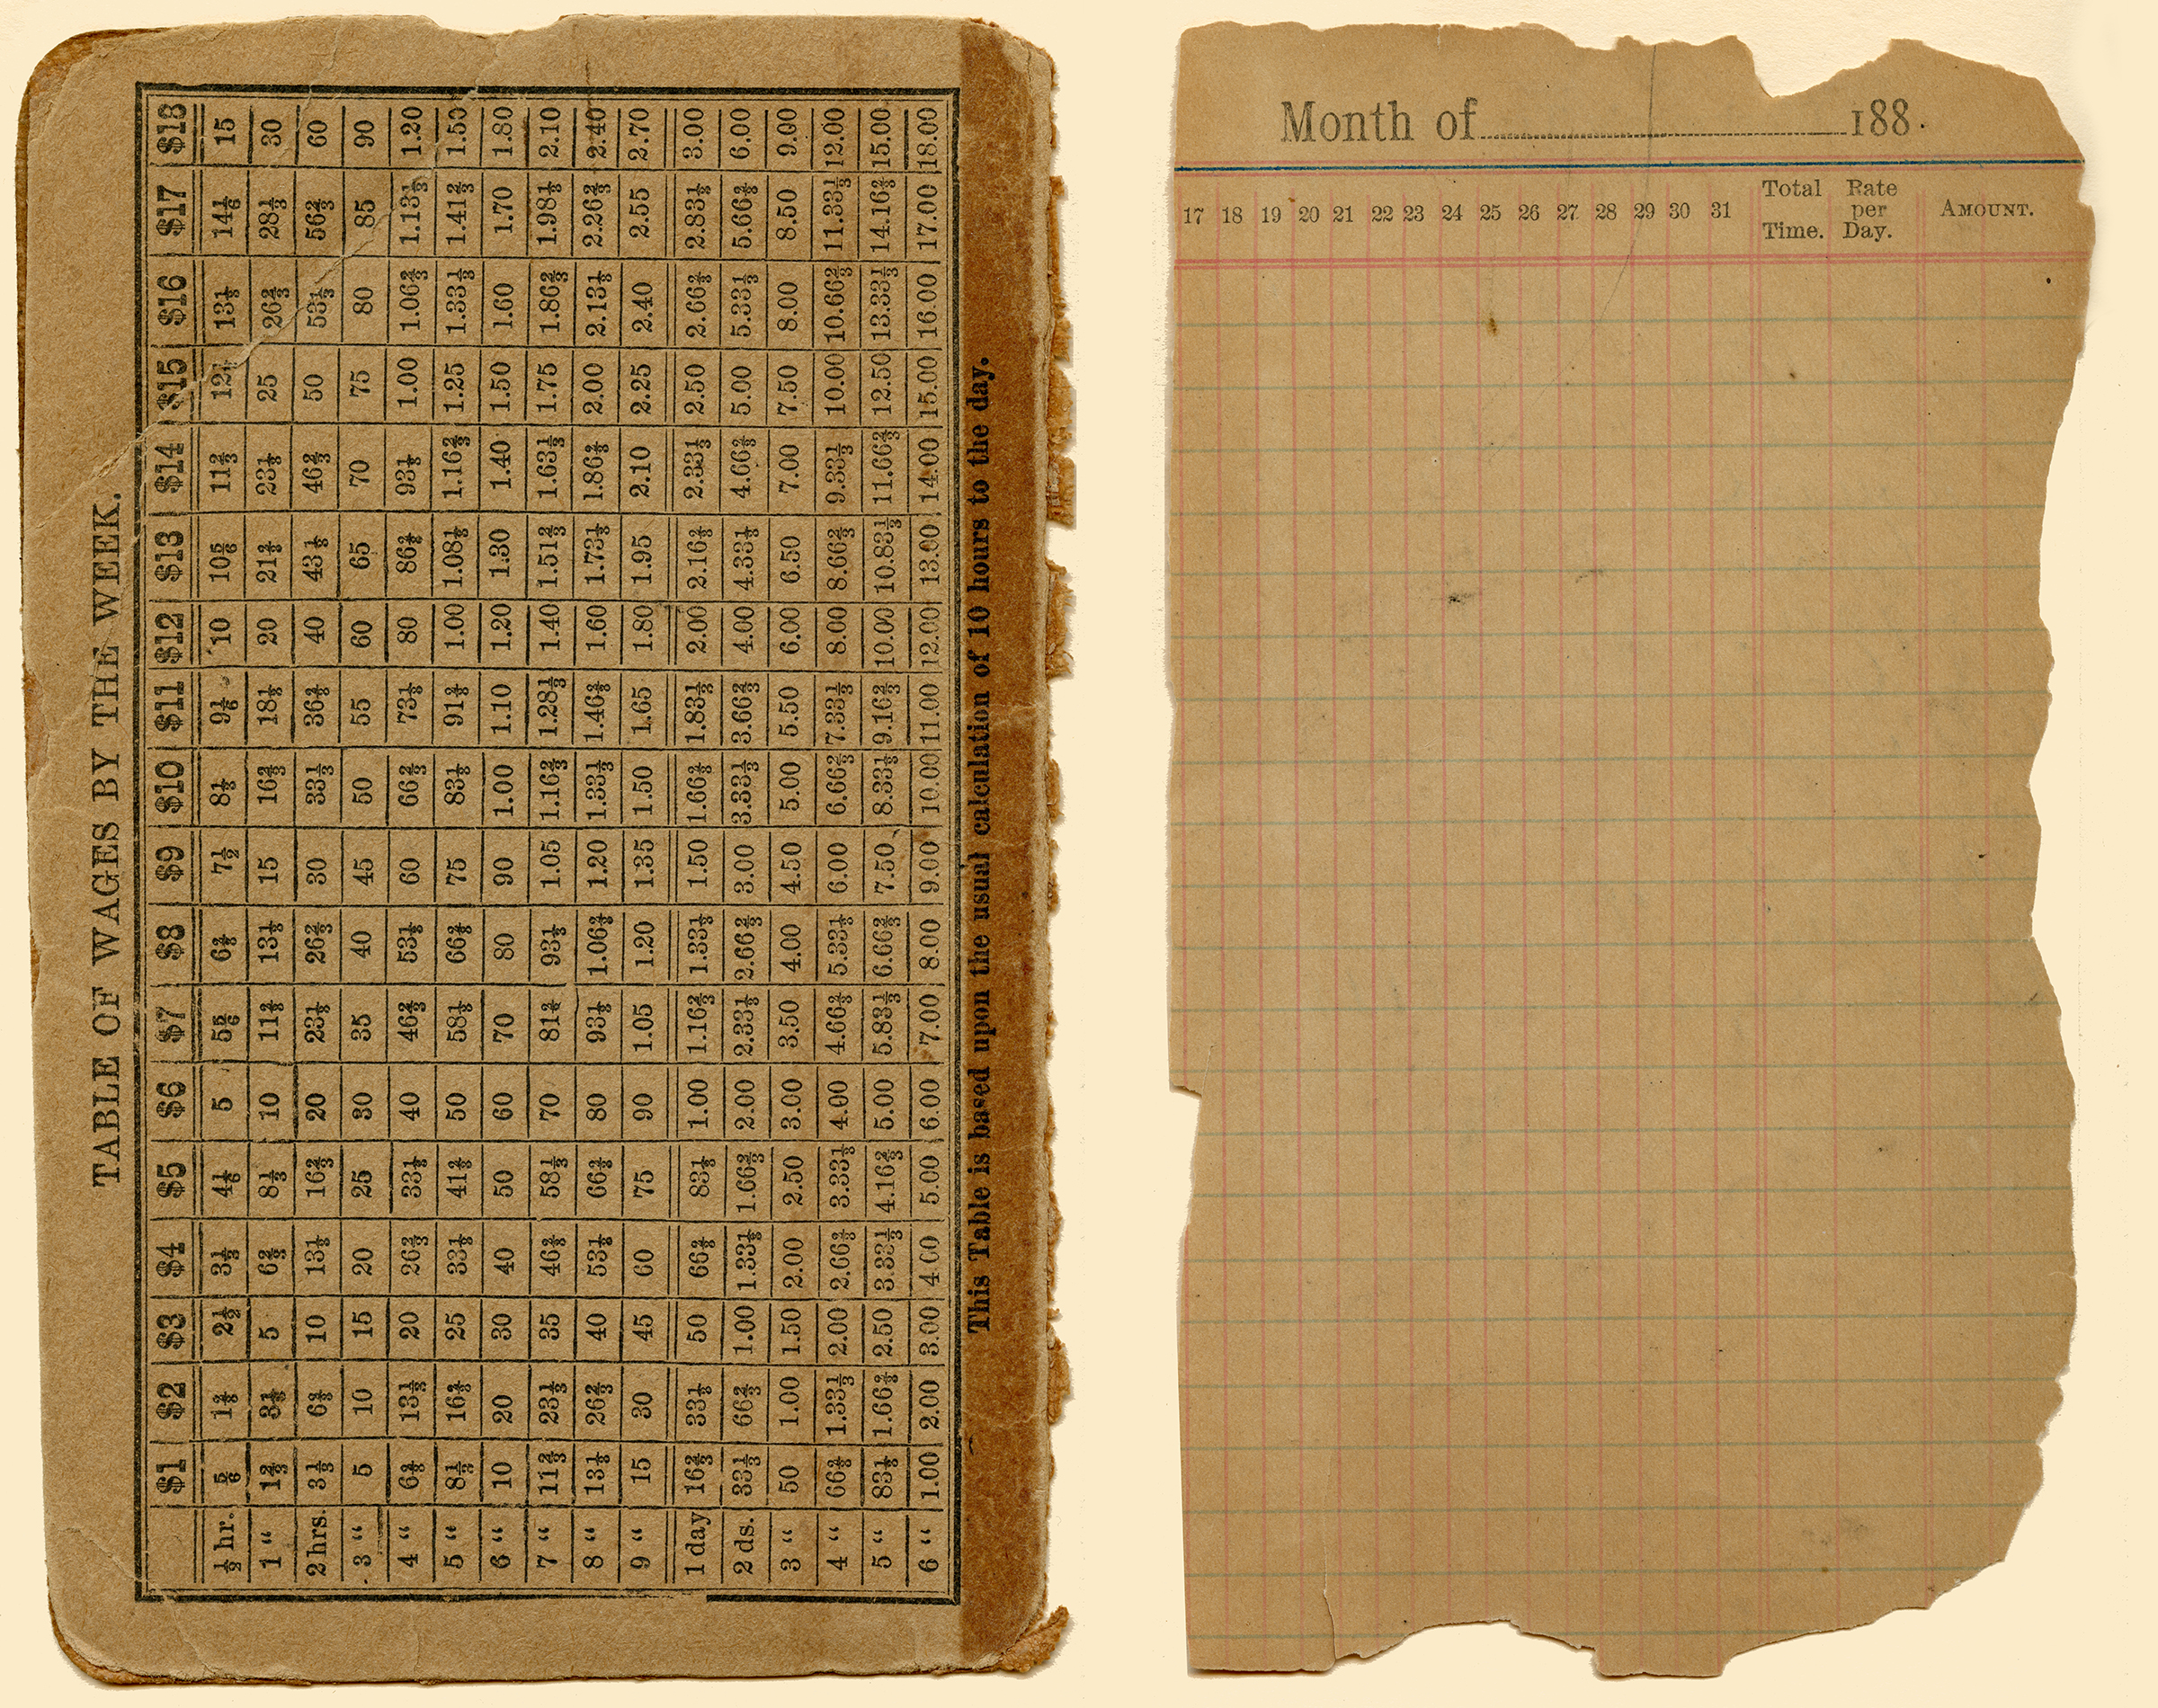 TABLE OF WAGES BY THE WEEK.
$1 $2 $3 $4 $5 $6 $7 $8 $9 $10 $11 $12 $13 $14 $15 $16 $17 $18
½ hr. ⅚ 1⅔ 2½ 3⅓ 4⅙ 5 5⅚ 6⅔ 7½ 8⅓ 9⅙ 10 10⅚ 11⅔ 12½ 13⅓ 14⅙ 15
1 “ 1⅔ 3⅓ 5 6⅔ 8⅓ 10 11⅔ 13⅓ 15 16⅔ 18⅓ 20 21⅔ 23⅓ 25 26⅔ 28⅓ 30
2 hrs. 3⅓ 6⅔ 10 13⅓ 16⅔ 20 23⅓ 26⅔ 30 33⅓ 36⅔ 40 43⅓ 46⅔ 50 53⅓ 56⅔ 60
3 “ 5 10 15 20 25 30 35 40 45 50 55 60 65 70 75 80 85 90
4 “ 6⅔ 13⅓ 20 26⅔ 33⅓ 40 46⅔ 53⅓ 60 66⅔ 73⅓ 80 86⅔ 93⅓ 1.00 1.06⅔ 1.13⅓ 1.20
5 “ 8⅓ 16⅔ 25 33⅓ 41⅔ 50 58⅓ 66⅔ 75 83⅓ 91⅔ 1.00 1.08⅓ 1.16⅔ 1.25 1.33⅓ 1.41⅔ 1.50
6 “ 10 20 30 40 50 60 70 80 90 1.00 1.10 1.20 1.30 1.40 1.50 1.60 1.70 1.80
7 “ 11⅔ 23⅓ 35 46⅔ 58⅓ 70 81⅔ 93⅓ 1.05 1.16⅔ 1.28⅓ 1.40 1.51⅔ 1.63⅓ 1.75 1.86⅔ 1.98⅓ 2.10
8 “ 13⅓ 26⅔ 40 53⅓ 66⅔ 80 93⅓ 1.06⅔ 1.20 1.33⅓ 1.46⅔ 1.60 1.73⅓ 1.86⅔ 2.00 2.13⅓ 2.26⅔ 2.40
9 “ 15 30 45 60 75 90 1.05 1.20 1.35 1.50 1.65 1.80 1.95 2.10 2.25 2.40 2.55 2.70
1 day 16⅔ 33⅓ 50 66⅔ 83⅓ 1.00 1.16⅔ 1.33⅓ 1.50 1.66⅔ 1.83⅓ 2.00 2.16⅔ 2.33⅓ 2.50 2.66⅔ 2.83⅓ 3.00
2 ds. 33⅓ 66⅔ 1.00 1.33⅓ 1.66⅔ 2.00 2.33⅓ 2.66⅔ 3.00 3.33⅓ 3.66⅔ 4.00 4.33⅓ 4.66⅔ 5.00 5.33⅓ 5.66⅔ 6.00
3 “ 50 1.00 1.50 2.00 2.50 3.00 3.50 4.00 4.50 5.00 5.50 6.00 6.50 7.00 7.50 8.00 8.50 9.00
4 “ 66⅔ 1.33⅓ 2.00 2.66⅔ 3.33⅓ 4.00 4.66⅔ 5.33⅓ 6.00 6.66⅔ 7.33⅓ 8.00 8.66⅔ 9.33⅓ 10.00 10.66⅔ 11.33⅓ 12.00
5 “ 83⅓ 1.66⅔ 2.50 3.33⅓ 4.16⅔ 5.00 5.83⅓ 6.66⅔ 7.50 8.33⅓ 9.16⅔ 10.00 10.83⅓ 11.66⅔ 12.50 13.33⅓ 14.16⅔ 15.00
6 “ 1.00 2.00 3.00 4.00 5.00 6.00 7.00 8.00 9.00 10.00 11.00 12.00 13.00 14.00 15.00 16.00 17.00 18.00
This Table is based upon the usual calculation of 10 hours to the day.
Month of 188 .
17 18 19 20 21 22 23 24 25 26 27 28 29 30 31 Total Time. Rate per Day. AMOUNT.